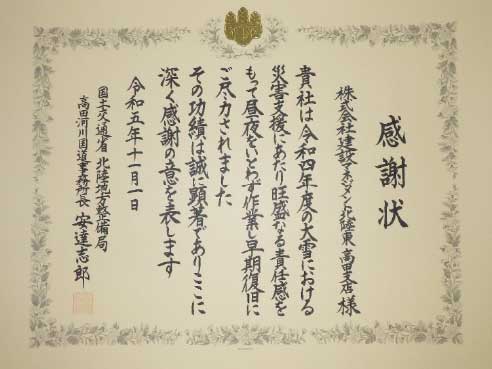 感謝状
株式会社建設マネジメント北陸東 高田支店 様
貴社は令和四年度の大雪における
災害支援にあたり旺盛なる責任感を
もって昼夜をいとわず作業し早期復旧に
ご尽力されました
その功績は誠に顕著でありここに
深く感謝の意を表します
令和五年十一月一日
国土交通省 北陸地方整備局
高田河川国道事務所長 安達志郎